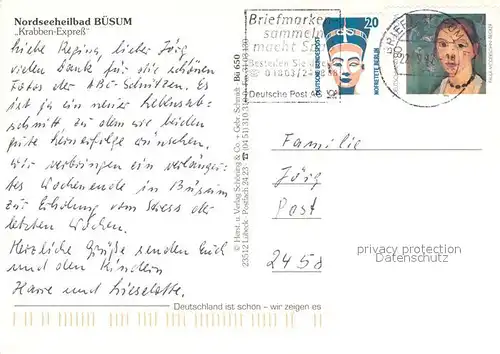 Nordseeheilbad BÜSUM
„Krabben-Expreß"
Liebe Regina, lieber Jörg
vielen Dank für die schönen
Fotos der ABC-Schützen. Es
ist ja ein neuer Lebensab-
schnitt zu dem wir beiden
gute Lernerfolge wünschen.
Wir verbringen ein verlänger-
tes Wochenende in Büsum
zur Erholung vom Stress der
letzten Wochen.
Herzliche Grüße senden Euch
und den Kindern
Harre und Lieselotte.
Deutschland ist schön – wir zeigen es
© Horst. u. Verlag Schöning & Co. - Gebr. Schmidt
23512 Lübeck · Postfach 24 23
Bü 650
Briefmarken
sammeln
macht Spaß
Bestellen Sie
Deutsche Post AG
20
DEUTSCHE BUNDESPOST
NOFRETETE BERLIN
BRIEF
Familie
Jörg
Post
2458
privacy protection
Datenschutz